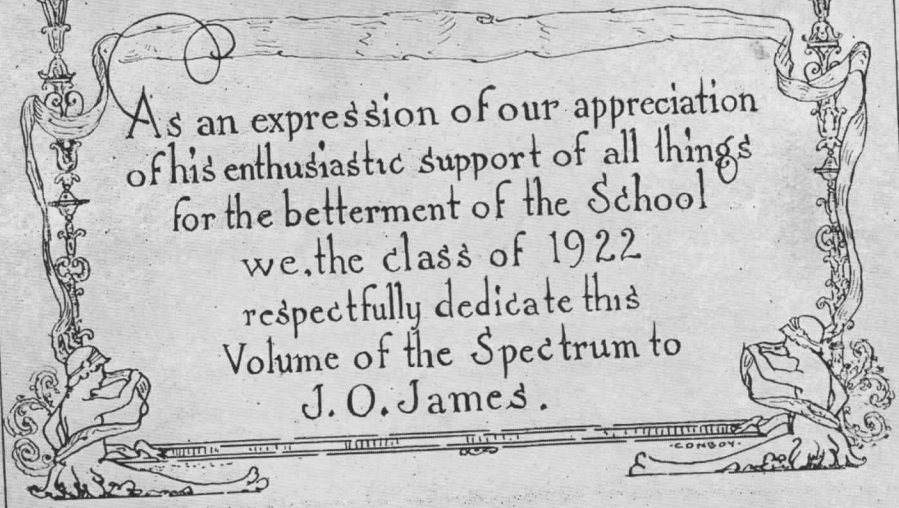 As an expression of our appreciation
of his enthusiastic support of all things
for the betterment of the School
we, the class of 1922
respectfully dedicate this
Volume of the Spectrum to
J. O. James.
·CONBOY·